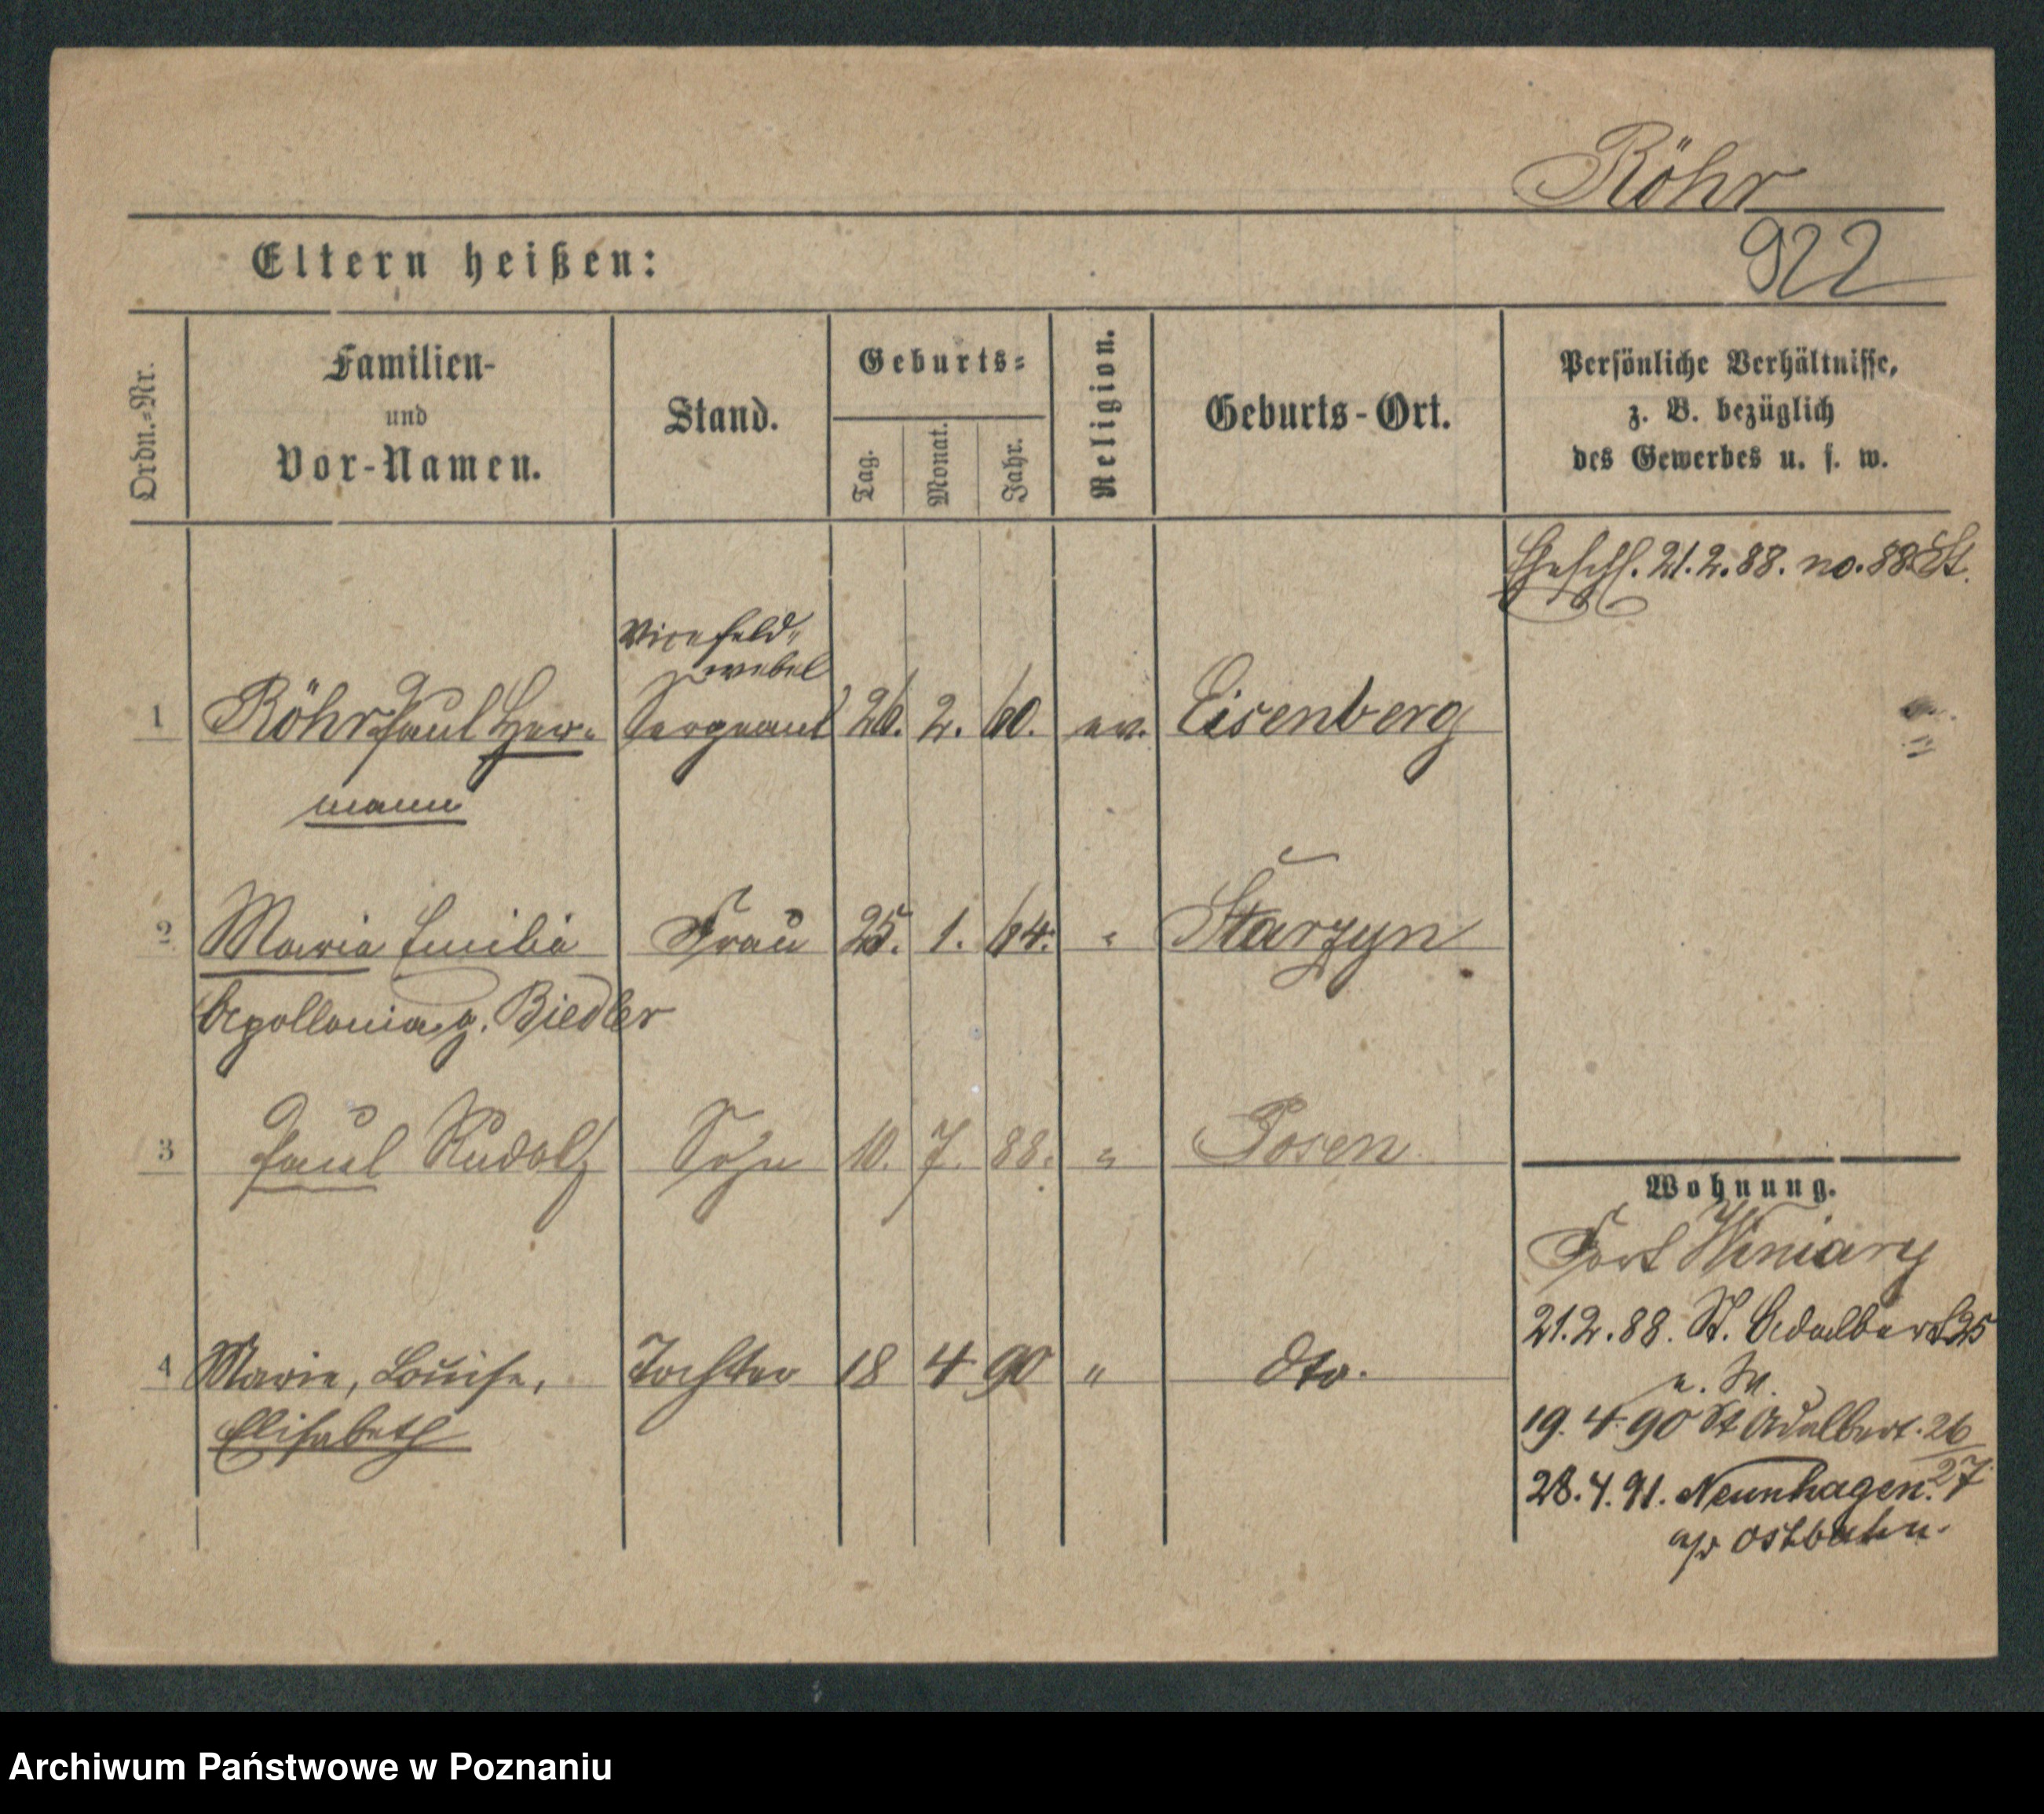 Röhr
922
Eltern heißen:
Ordn.-Nr.
Familien-
und
Vor-Namen.
Stand.
Geburts-
Tag.
Monat.
Jahr.
Religion.
Geburts-Ort.
Persönliche Verhältnisse,
z. B. bezüglich
des Gewerbes u. s. w.
21.2.88. no. 88. St.
Vicefeld-
webel
1 Röhr Paul Her- Sergeant 26. 2. 60. ev. Eisenberg
mann
2 Maria Emilia Frau 25. 1. 64. " Starzyn
Apollonia g. Biedler
3 Paul Rudolf Sohn 10. 7. 88. " Posen
Wohnung.
Fort Winiary
21.2.88. St. Adalbert 25
4 Marie, Louise, Tochter 18 4 90 " dto.
Elisabeth
19. 4 90 St Adalbert. 26
27
28.4.91. Neunhagen.
a/d Ostbahn.
Archiwum Państwowe w Poznaniu